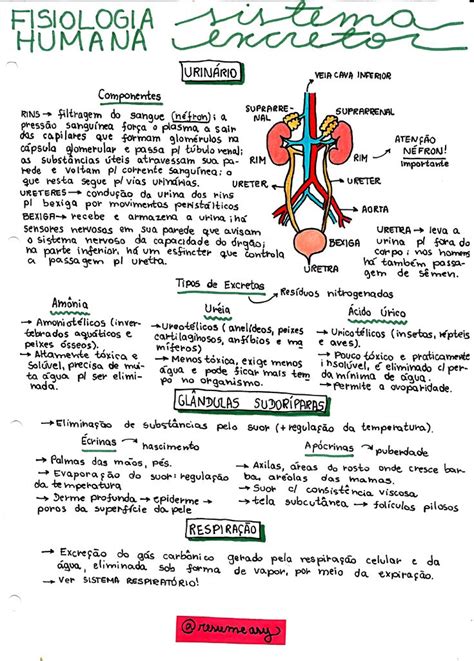 FISIOLOGIA
HUMANA
sistema
excretor
URINÁRIO
Componentes
RINS → filtragem do sangue (néfron); a
pressão sanguínea força o plasma a sair
das capilares que formam glomérulos na
cápsula glomerular e passa p/ túbulo renal;
as substâncias úteis atravessam sua pa-
rede e voltam p/ corrente sanguínea; o
que resta segue p/ vias urinárias.
URETERES → condução da urina dos rins
p/ bexiga por movimentos peristálticos
BEXIGA → recebe e armazena a urina ; há
sensores nervosos em sua parede que avisam
o sistema nervoso da capacidade do órgão;
na parte inferior, há um esfíncter que controla
a passagem p/ uretra.
VEIA CAVA INFERIOR
SUPRARRE-
NAL
SUPRARRENAL
RIM
RIM
ATENÇÃO
NÉFRON!
importante
URETER
URETER
AORTA
BEXIGA
URETRA
URETRA → leva a
urina p/ fora do
corpo; nos homens
há também passa-
gem de sêmen.
Tipos de Excretas
Resíduos nitrogenados
Amônia
→ Amoniotélicos (inver-
tebrados aquáticos e
peixes ósseos).
→ Altamente tóxica e
solúvel, precisa de mui-
ta água p/ ser elimi-
nada.
Uréia
→ Ureotélicos (anelídeos, peixes
cartilaginosos, anfíbios e ma-
míferos)
→ Menos tóxica, exige menos
água e pode ficar mais tem
po no organismo.
Ácido Úrico
→ Uricotélicos (insetos, répteis
e aves).
→ Pouco tóxico e praticamente
insolúvel, é eliminado c/ per
da mínima de água.
→ Permite a oviparidade.
GLÂNDULAS SUDORÍPARAS
→ Eliminação de substâncias pelo suor (+ regulação da temperatura).
Écrinas → nascimento
→ Palmas das mãos, pés.
→ Evaporação do suor: regulação
da temperatura
→ Derme profunda → epiderme →
poros da superfície da pele
Apócrinas → puberdade
→ Axilas, áreas do rosto onde cresce bar-
ba, aréolas das mamas.
→ Suor c/ consistência viscosa
→ tela subcutânea → folículos pilosos
RESPIRAÇÃO
→ Excreção do gás carbônico gerado pela respiração celular e da
água, eliminada sob forma de vapor, por meio da expiração.
→ Ver SISTEMA RESPIRATÓRIO!
@resumeasy